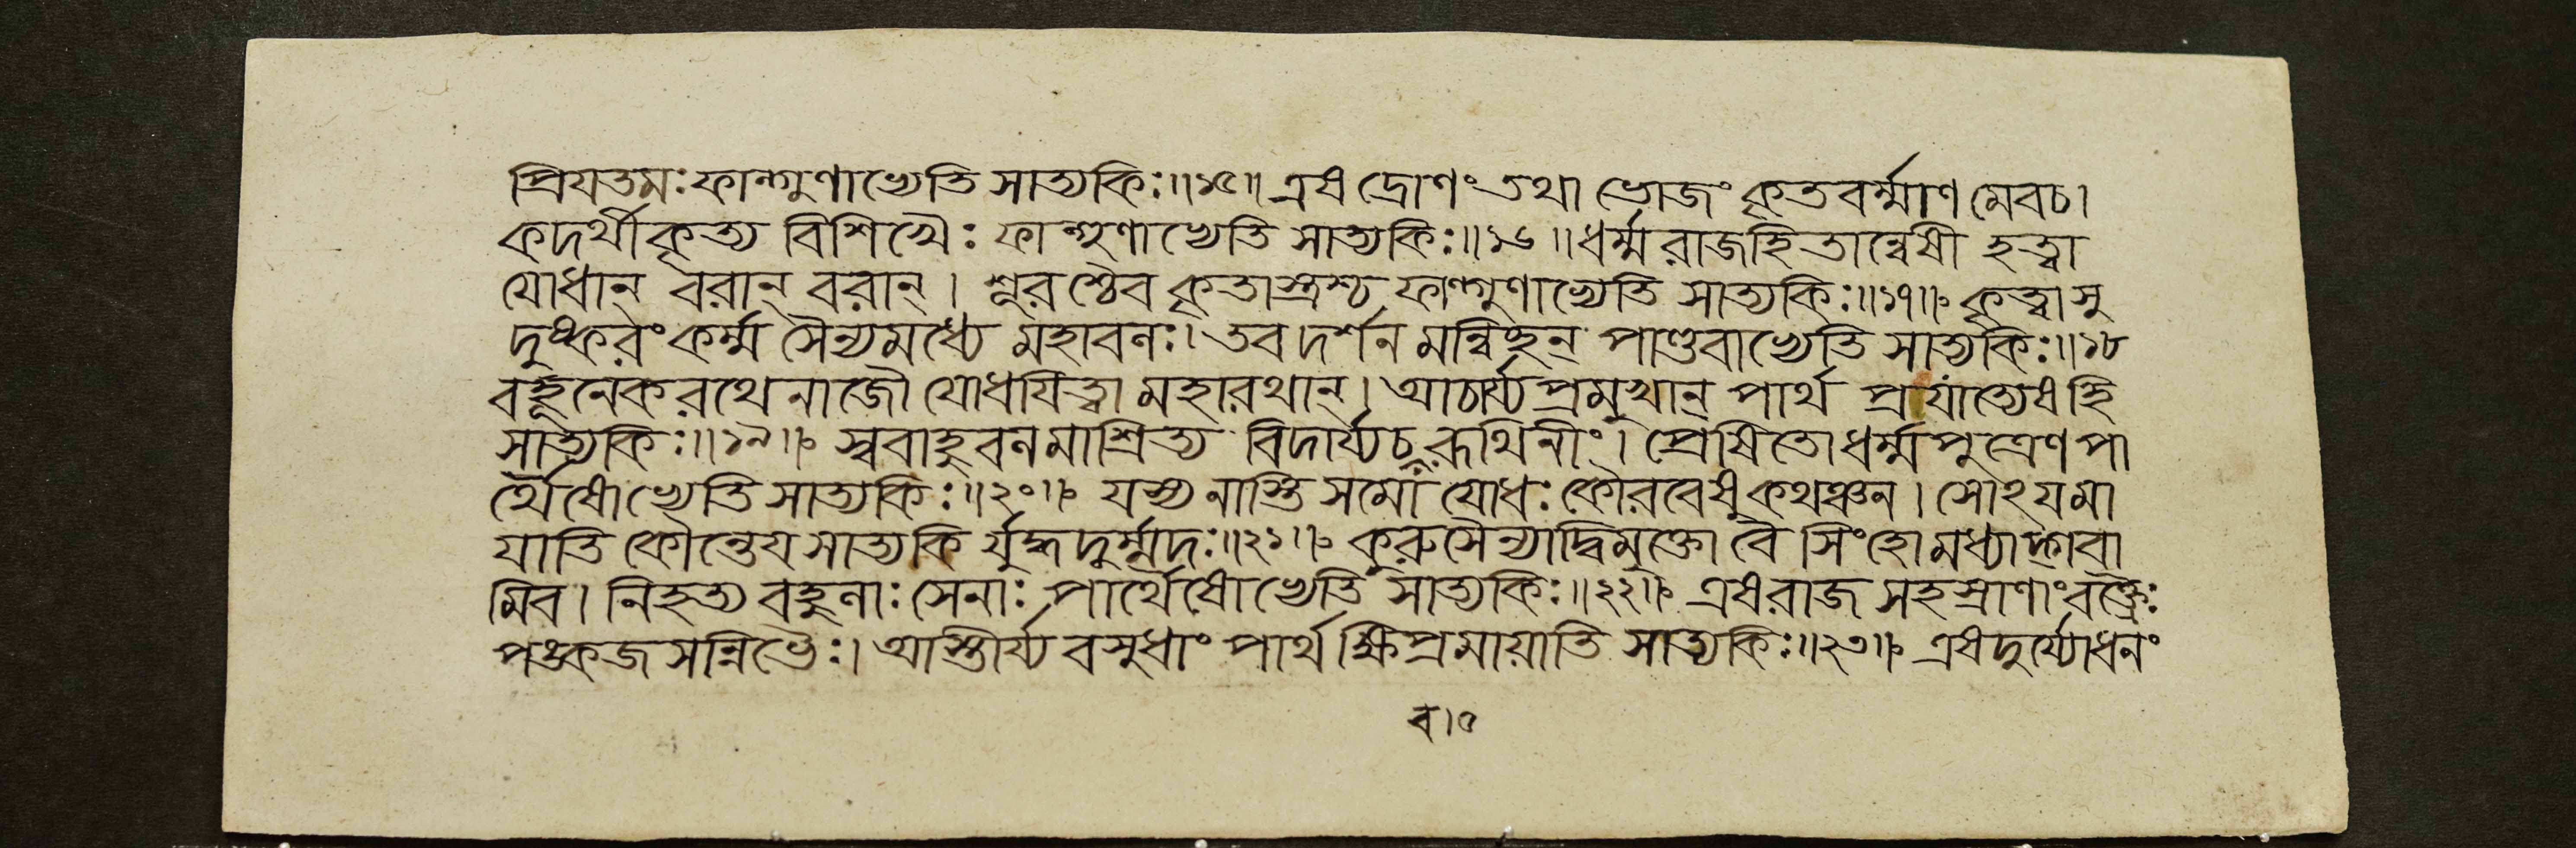 প্রিযতমঃ ফাল্গুণাভ্যেতি সাত্যকিঃ॥১৫॥ এষ দ্রোণং তথা ভোজং কৃতবর্ম্মাণ মেবচ।
কদর্থীকৃত্য বিশিখৈঃ ফাল্গুণাভ্যেতি সাত্যকিঃ॥১৬॥ ধর্ম্মরাজহিতান্বেষী হত্বা
যোধান্ বরান্ বরান্। শূরশ্চৈব কৃতাস্ত্রশ্চ ফাল্গুণাভ্যেতি সাত্যকিঃ॥১৭॥ কৃত্বা সু
দুষ্করং কর্ম্ম সৈন্যমধ্যে মহাবলঃ। তব দর্শন মন্বিচ্ছন্ পাণ্ডবাভ্যেতি সাত্যকিঃ॥১৮
বহূনেকরথেনাজৌ যোধযিত্বা মহারথান্। আচার্য্যপ্রমুখান্ পার্থ প্রযাত্যেষ হি
সাত্যকিঃ॥১৯॥ স্ববাহুবলমাশ্রিত্য বিদার্য্যচ বরূথিনীং। প্রেষিতো ধর্ম্মপুত্রেণ পা
র্থৈষোভ্যেতি সাত্যকিঃ॥২০॥ যস্য নাস্তি সমো যোধঃ কৌরবেষু কথঞ্চন। সোঽযমা
যাতি কৌন্তেয সাত্যকি র্যুদ্ধদুর্ম্মদঃ॥২১॥ কুরুসৈন্যাদ্বিমুক্তো বৈ সিংহো মধ্যাদ্গবা
মিব। নিহত্য বহুলাঃ সেনাঃ পার্থৈষোভ্যেতি সাত্যকিঃ॥২২॥ এষ রাজ সহস্রাণাং বক্ত্রৈঃ
পঙ্কজ সন্নিভৈঃ। আস্তীর্য্য বসুধাং পার্থ ক্ষিপ্রমায়াতি সাত্যকিঃ॥২৩॥ এষ দুর্য্যোধনং